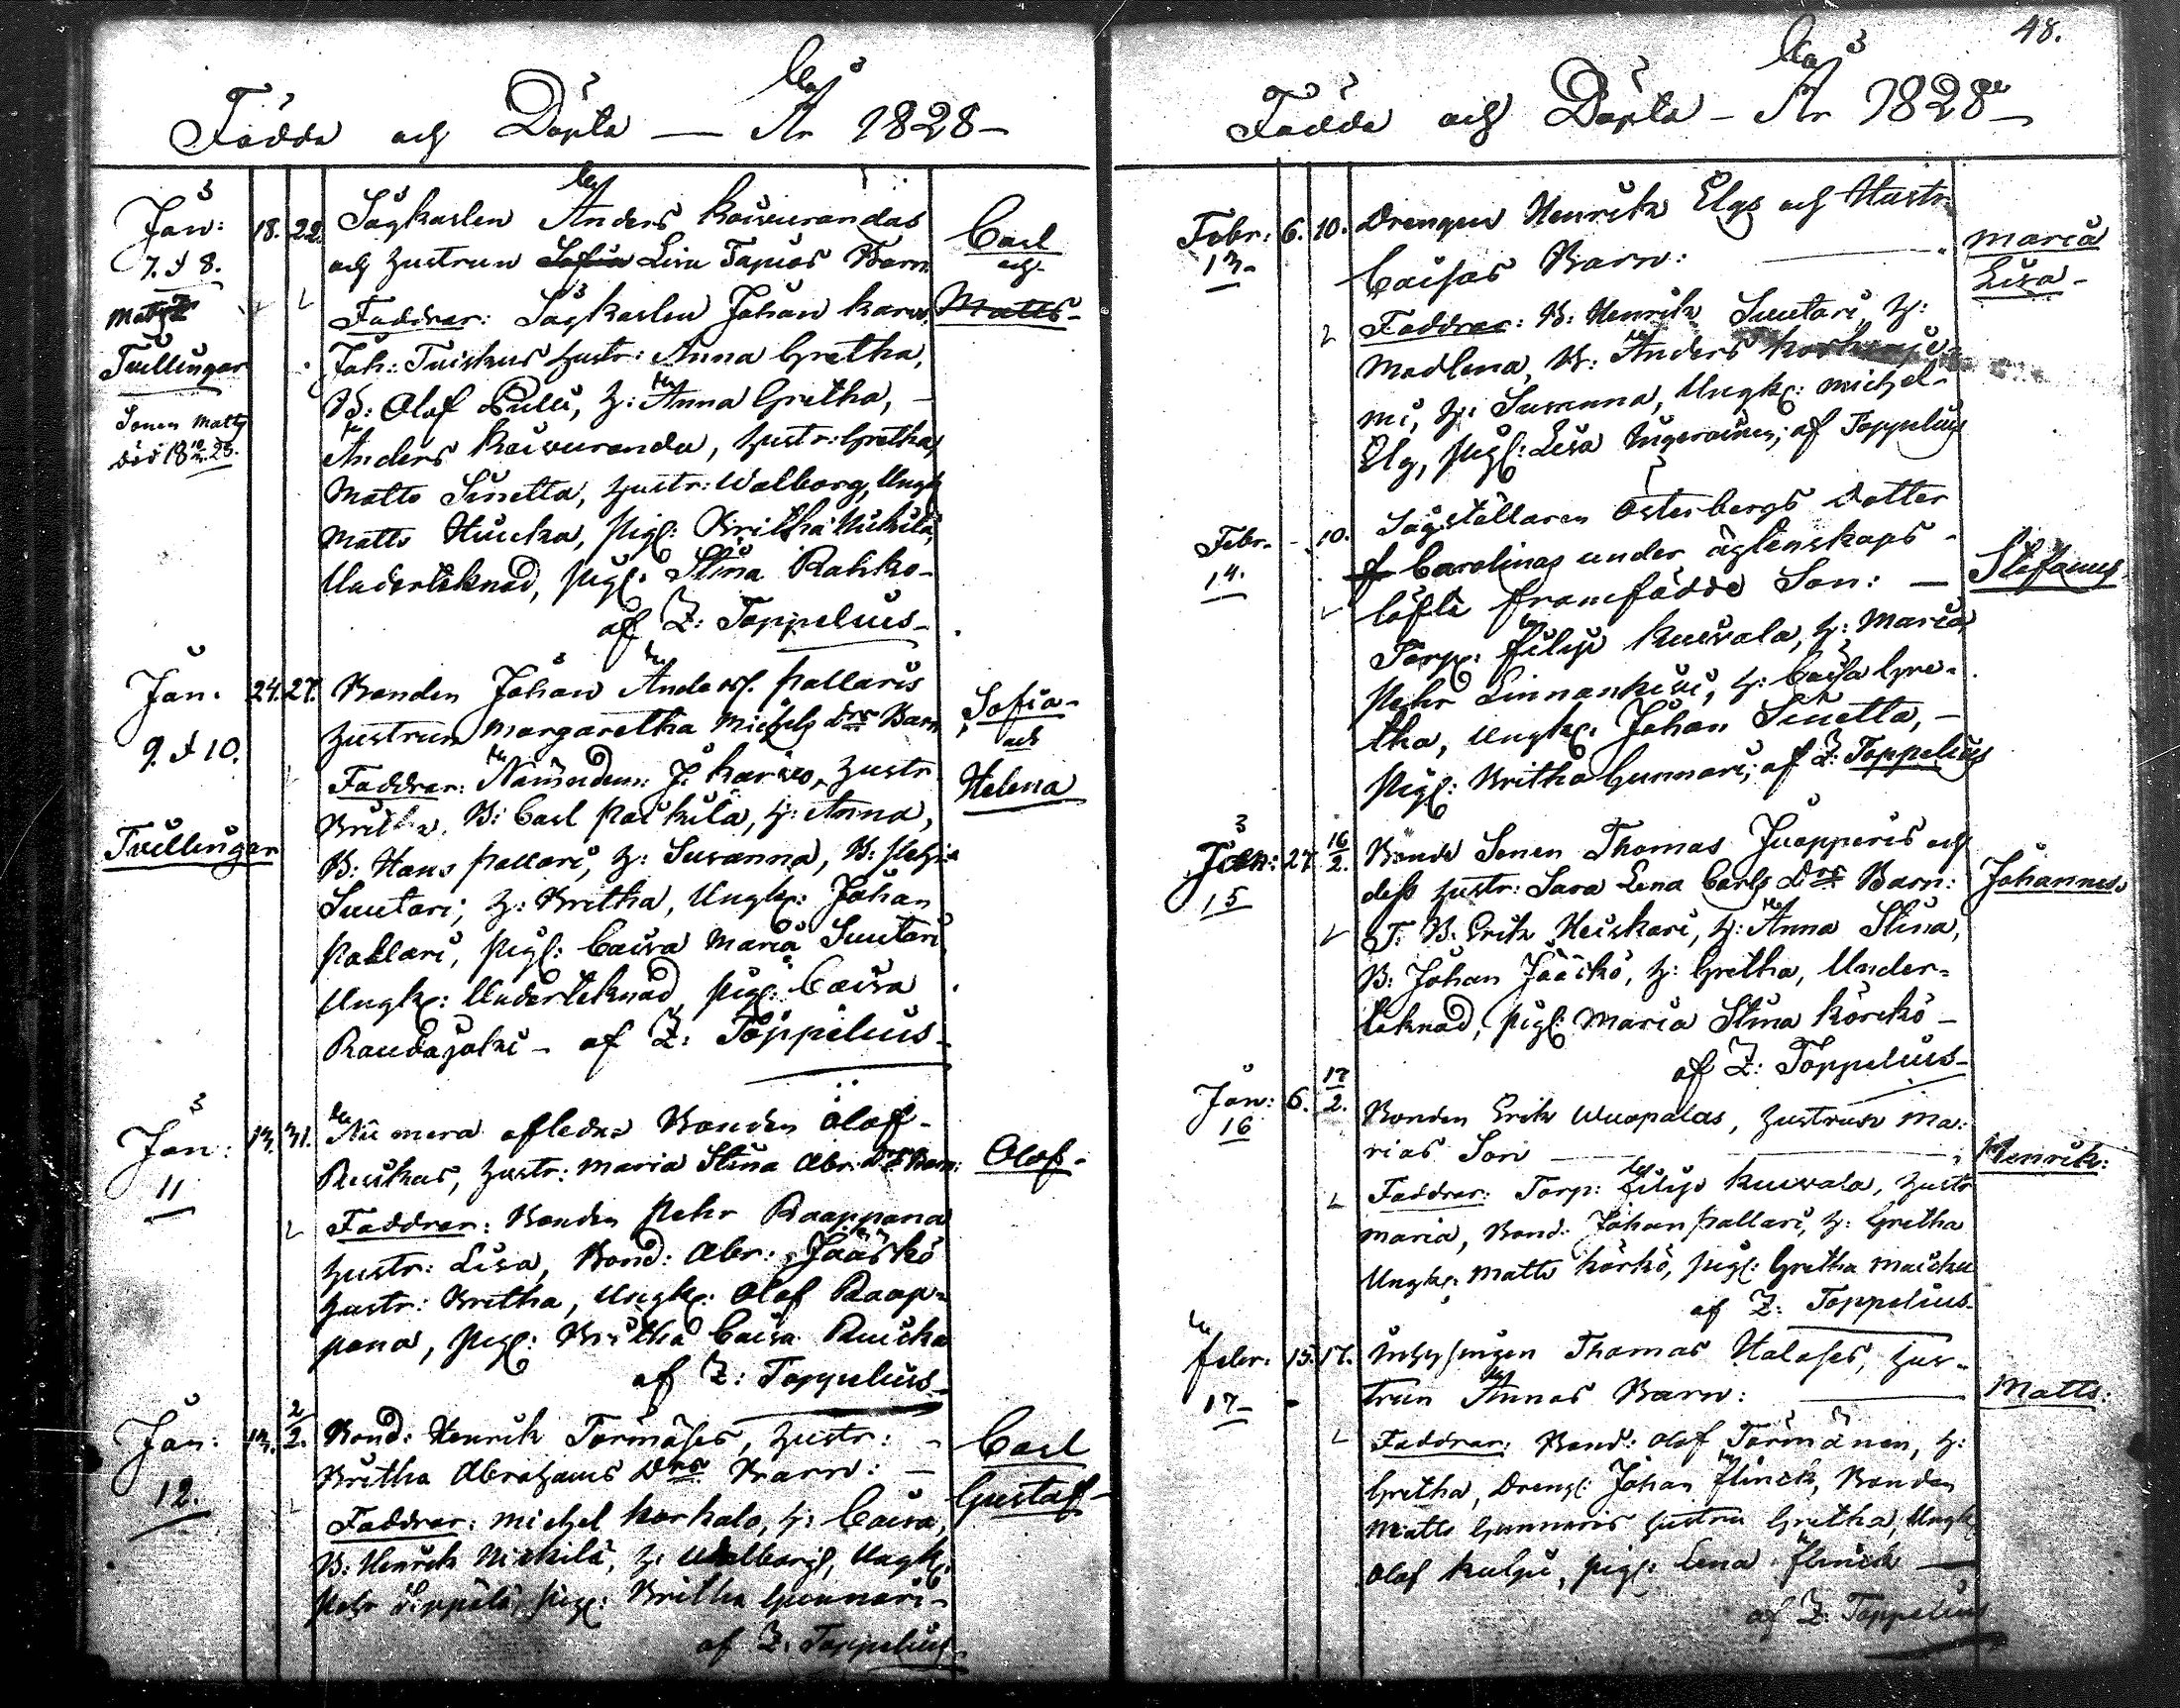 Födda och Döpta — År 1828 —
Jan: 18. 22. Sågkarlen Anders Kaivurandas
7. & 8. och hustrun Lisa Tapios Barn Carl
och
Faddrar: Sågkarlen Johan Matts
Tvillingar Joh: Tuiskus hustr: Anna Gretha,
B: Olof Pulli, h: Anna Gretha,
Sonen Matts Anders Kaivuranda, hustr: Gretha,
död Matts Sinetta, hustr: Walborg, Ungk:
Matts Hiucka, pig: Britha
Undertecknad, pig: Stina Rahko-
af Z: Toppelius
Jan. 24. 27. Bonden Johan Anders: Pallaris
9. & 10. hustrun Margaretha Michels Drs Barn Sofia
och
Faddrar: Nämndem: J: hustr Helena
Britha. B: Carl h: Anna,
Tvillingar B: Hans Pallari, h: Susanna, B:
Suutari, h: Britha, Ungk: Johan
Pallari, pig: Caisa Maria Suutari
Ungk: Undertecknad, pig: Caisa
Raudajoki — af Z: Toppelius
Jan: 13. 31. Nu mera afledne Bonden Olof
11 hustr: Maria Stina Abr: Drs Barn: Olof
Faddrar: Bonden Pehr Raappana
hustr: Lisa, Bond: Abr: Jääskö
hustr: Britha, Ungk: Olof Raap-
pana, pig: Britha Caisa
af Z: Toppelius
Jan: 13. 2/2. Bond: Henrik Törmäses, hustr: Carl
12. Britha Abrahams Drs Barn: Gustaf
Faddrar: Michel Korkalo, h: Caisa,
B: Henrik Nickilä, h: Walborg, Ungk:
Pehr Seppälä, pig: Britha Gunnari
af Z: Toppelius
48.
Födda och Döpta — År 1828
Febr: 6. 10. Drengen Henrik Elgs och Hustr: Maria
13 Caisas Barn: Lisa
Faddrar: B: Henrik Suutari, h:
Madlena, B: Anders
h: Susanna, Ungk: Michel
Elg, pig: Lisa af Toppelius
Febr. 10. Sågställaren Österbergs dotter
14. Carolinas under äktenskaps Stefanus
löfte framfödde Son:
Torp: Filip Kuivala, h: Maria,
Pehr Linnankivi, h: Caisa Gre-
tha, Ungk: Johan Sinetta,
Pig: Britha Gunnari, af Z: Toppelius
Jan: 27. 16/2. Bonde Sonen Thomas Juopperis och
15 dess hustr: Sara Lena Carls Drs Barn: Johannes
F. B: Erik Heiskari, h: Anna Stina,
B: Johan Jääskö, h: Gretha, Under-
teknad, pig: Maria Stina Körkö
af Z: Toppelius
Jan: 6. 17/2. Bonden Erik Wuopalas, hustrun Ma-
16 rias Son Henrik:
Faddrar: Torp: Filip Kuivala, hustr
Maria, Bond: Johan Pallari, h: Gretha
Ungk: Matts Körkö, pig: Gretha
af Z: Toppelius
Febr. 15. 17. Inhysingen Thomas Halases, hus-
17 trun Annas Barn: Matts:
Faddrar: Bond: Olof Törmänen, h:
Gretha, Dreng: Johan Flinck, Bonden
Matts Gunnaris hustru Gretha, Ungk:
Olof Kulpi, pig: Lena Flinck —
af Z: Toppelius